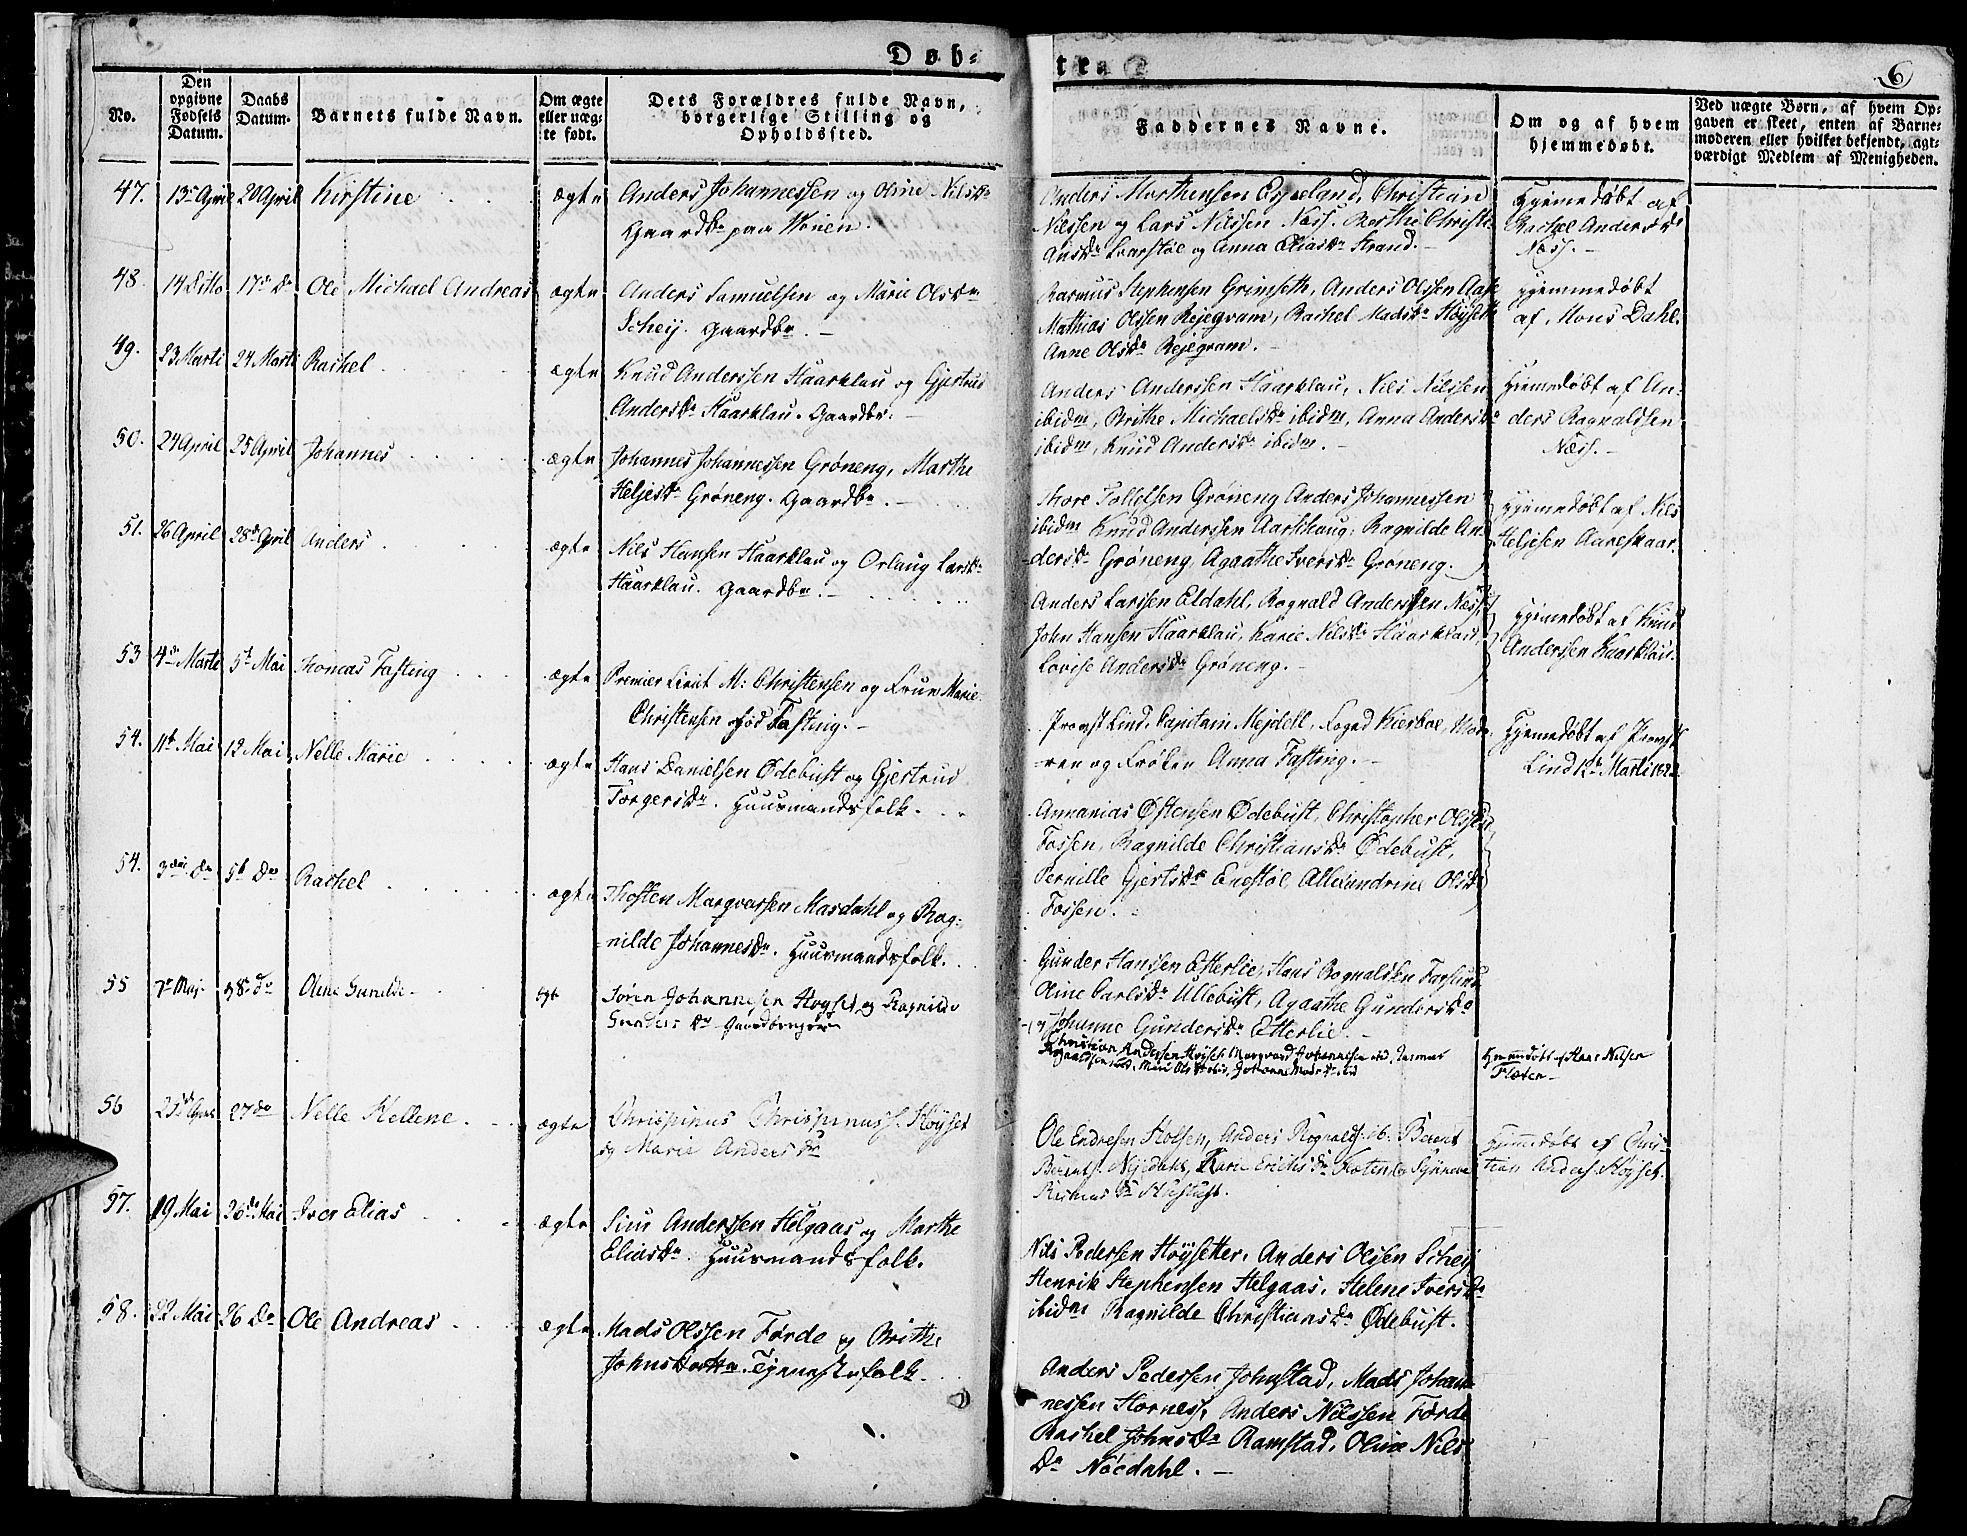 Døb=
tra
6
No.
Den opgivne Fødsels Datum.
Daabs Datum.
Barnets fulde Navn.
Om ægte eller uæg- te født.
Dets Forældres fulde Navn, borgerlige Stilling og Opholdssted.
Faddernes Navne.
Om og af hvem hjemmedøbt.
Ved uægte Børn, af hvem Op- gaven er skeet, enten af Barne- moderen eller hvilket bekjendt, agt- værdigt Medlem af Menigheden.
47. 13de April 20 April Kirstine ægte Anders Johannessen og Oline Nilsdr
Gaardbr paa
Anders Morthensen Espeland, Christian
Nilssen og Lars Nilssen Næss. Berthe Christi-
ansdr Svarstøe og Anna Eliasdr Strand.
Hjemedøbt af
Rachel Andersdr
Næss.
48. 14 Ditto 17de do Ole Michael Andreas ægte Anders Samuelsen og Marie Olsdr
Schej. Gaardbr.
Rasmus Stephensen Grimseth, Anders Olssen
Mathias Olssen Rejegram, Rachel Madsdr Høyseth
Anne Olsdr Rejegram.
Hjemmedøbt
af Mons Dahl.
49. 23 Marti 24 Marti Rachel ægte Knud Anderssen Haarklau og Gjertrud
Andersdr Haarklau. Gaardbr.
Anders Anderssen Haarklau, Nils Nilssen
ibidm, Brithe Michaelsdr ibidm, Anna Andersdr
ibidm, Knud Andersdr ibidm.
Hjemedøbt af An-
ders Ragnaldsen
Næss.
50. 24 April 25 April Johannes ægte Johannes Johannessen Grøneng, Marthe
Heljesdr Grøneng. Gaardbr.
Thore Tollefsen Grøneng Anders Johannessen
ibidm Knud Anderssen Aarskaug, Ragnilde An-
dersdr Grøneng, Agaathe Iversdr Grøneng.
Hjemedøbt af Nils
Heljesen Aareskaar.
51. 26 April 28de April Anders ægte Nils Hansen Haarklau og Orlaug Larsdr
Haarklau. Gaardbr.
Anders Larssen Eldahl, Rognald Anderssen Næss,
John Hansen Haarklau, Karie Nilsdr Haarklau,
Lovise Andersdr Grøneng.
Hjemedøbt af Knud
Anderssen Haarklau.
53 4de Marti 5te Mai Thomas Fasting ægte Premier Lieut M: Christensen og Frue Marie
Christensen fød Fasting.
Provst Lind, Capitain Mejdell, Foged Kierboe, Mode-
ren og Frøken Anna Fasting.
Hjemedøbt af Provst
Lind 12te Marti
54. 11te Mai 12 Mai Nelle Marie ægte Hans Danielsen Ødebust og Gjertrud
Torgersdr. Huusmandsfolk.
Annanias Østensen Ødebust, Christopher Olssen
Fossen, Ragnilde Christiansdr Ødebust,
Pernille Gjertsdr Enestøl, Allexandrine Olsdr
Fossen.
54. 3die do 5te do Rachel ægte Thosten Marqvarssen Masdahl og Rag-
nilde Johannesdr. Huusmandsfolk.
Gunder Hanssen Etterlie, Hans Rognaldsen
Oline Carlsdr Ullebust, Agaathe Gundersdr
og Johanne Gundersdr Etterlie.
55 Oline Gunilde Søren Johannesen Høyset og Ragnilde
Gundersdr Gaardbrugere
Christian Andersen Høyset, Marqvard Johannesen ibid, Rasmus
ibid, Marie Olsdr ibid, Johanne Madsdr ibid
Hjemmedøbt af Hans Nilsen
Fløten
56 25de April 27 do Nelle Hellene ægte Chrispinus Chrispinuss. Høyset
og Marie Andersdr
Ole Endresen Holsen, Anders Rognalds. ib. Berent
Berents. Nyedahl, Karie Erichsdr
Rasmusdr
Hjemmedøbt af Chris-
tian Anders. Høyset.
57. 19 Mai 26de Mai Iver Elias ægte Siur Anderssen Helgaas og Marthe
Eliasdr. Huusmandsfolk.
Nils Pedersen Høysetter, Anders Olssen Schej
Henrik Stephensen Helgaas, Helene Iversdr
ibidm Ragnilde Christiansdr Ødebust.
58. 22 Mai 26 do Ole Andreas ægte Mads Olssen Førde og Brithe
Johnsdotter. Tjenestefolk.
Anders Pedersen Johnstad, Mads Johan-
nessen Hornes, Anders Nilssen Førde
Rachel Johnsdr Ramstad, Oline Nils
Dr Nøcdahl.